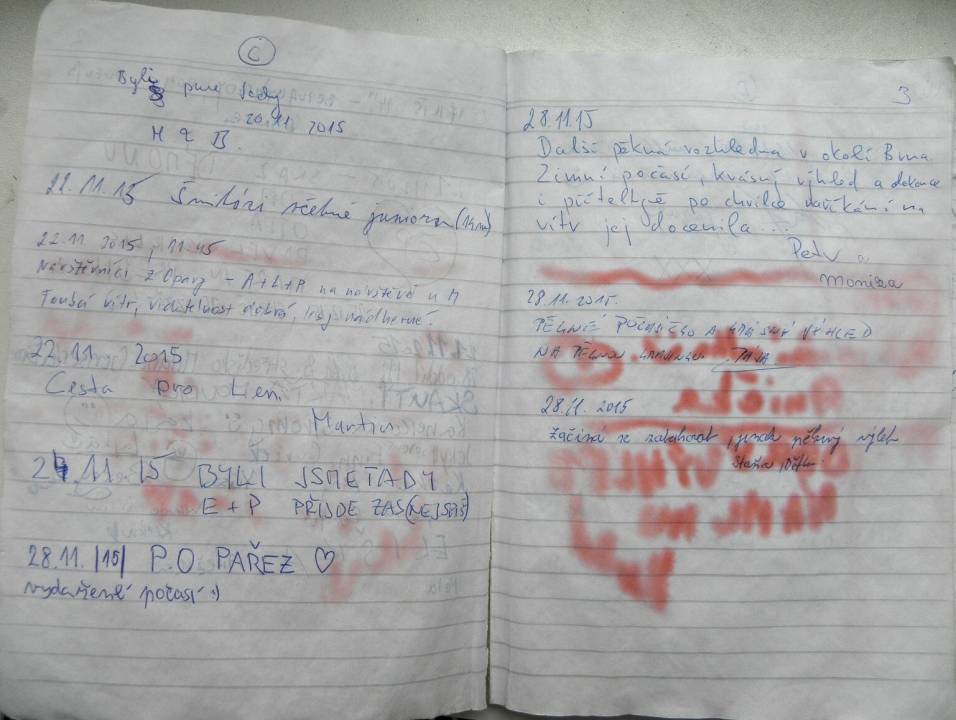 C
Byli jsme tady
20.11 2015
M & B.
22.11.15 juniora (14m)
22.11 2015, 11.45
Návštěvníci z Opavy - A+L+P na návštěvě u M
Foukal vítr, viditelnost dobrá, nádherné.
22.11 2015
Cesta pro Leni
Martin
24.11 15 BYLI JSME TADY
E + P PŘIJDE ZAS (NEJSPÍŠ)
28.11. |15| P.O PAŘEZ ♡
vydařené počasí :)
3
28.11.15
Další pěkná rozhledna v okolí Brna.
Zimní počasí, krásný výhled a dokonce
i přítelkyně po chvilce naříkání na
vítr jej docenila...
Petr a
Monika
28.11. 2015.
PĚKNÉ POČASÍČKO A KRÁSNÝ VÝHLED
NA PĚKNOU
28.11. 2015
Začíná se zatahovat, jinak pěkný výlet